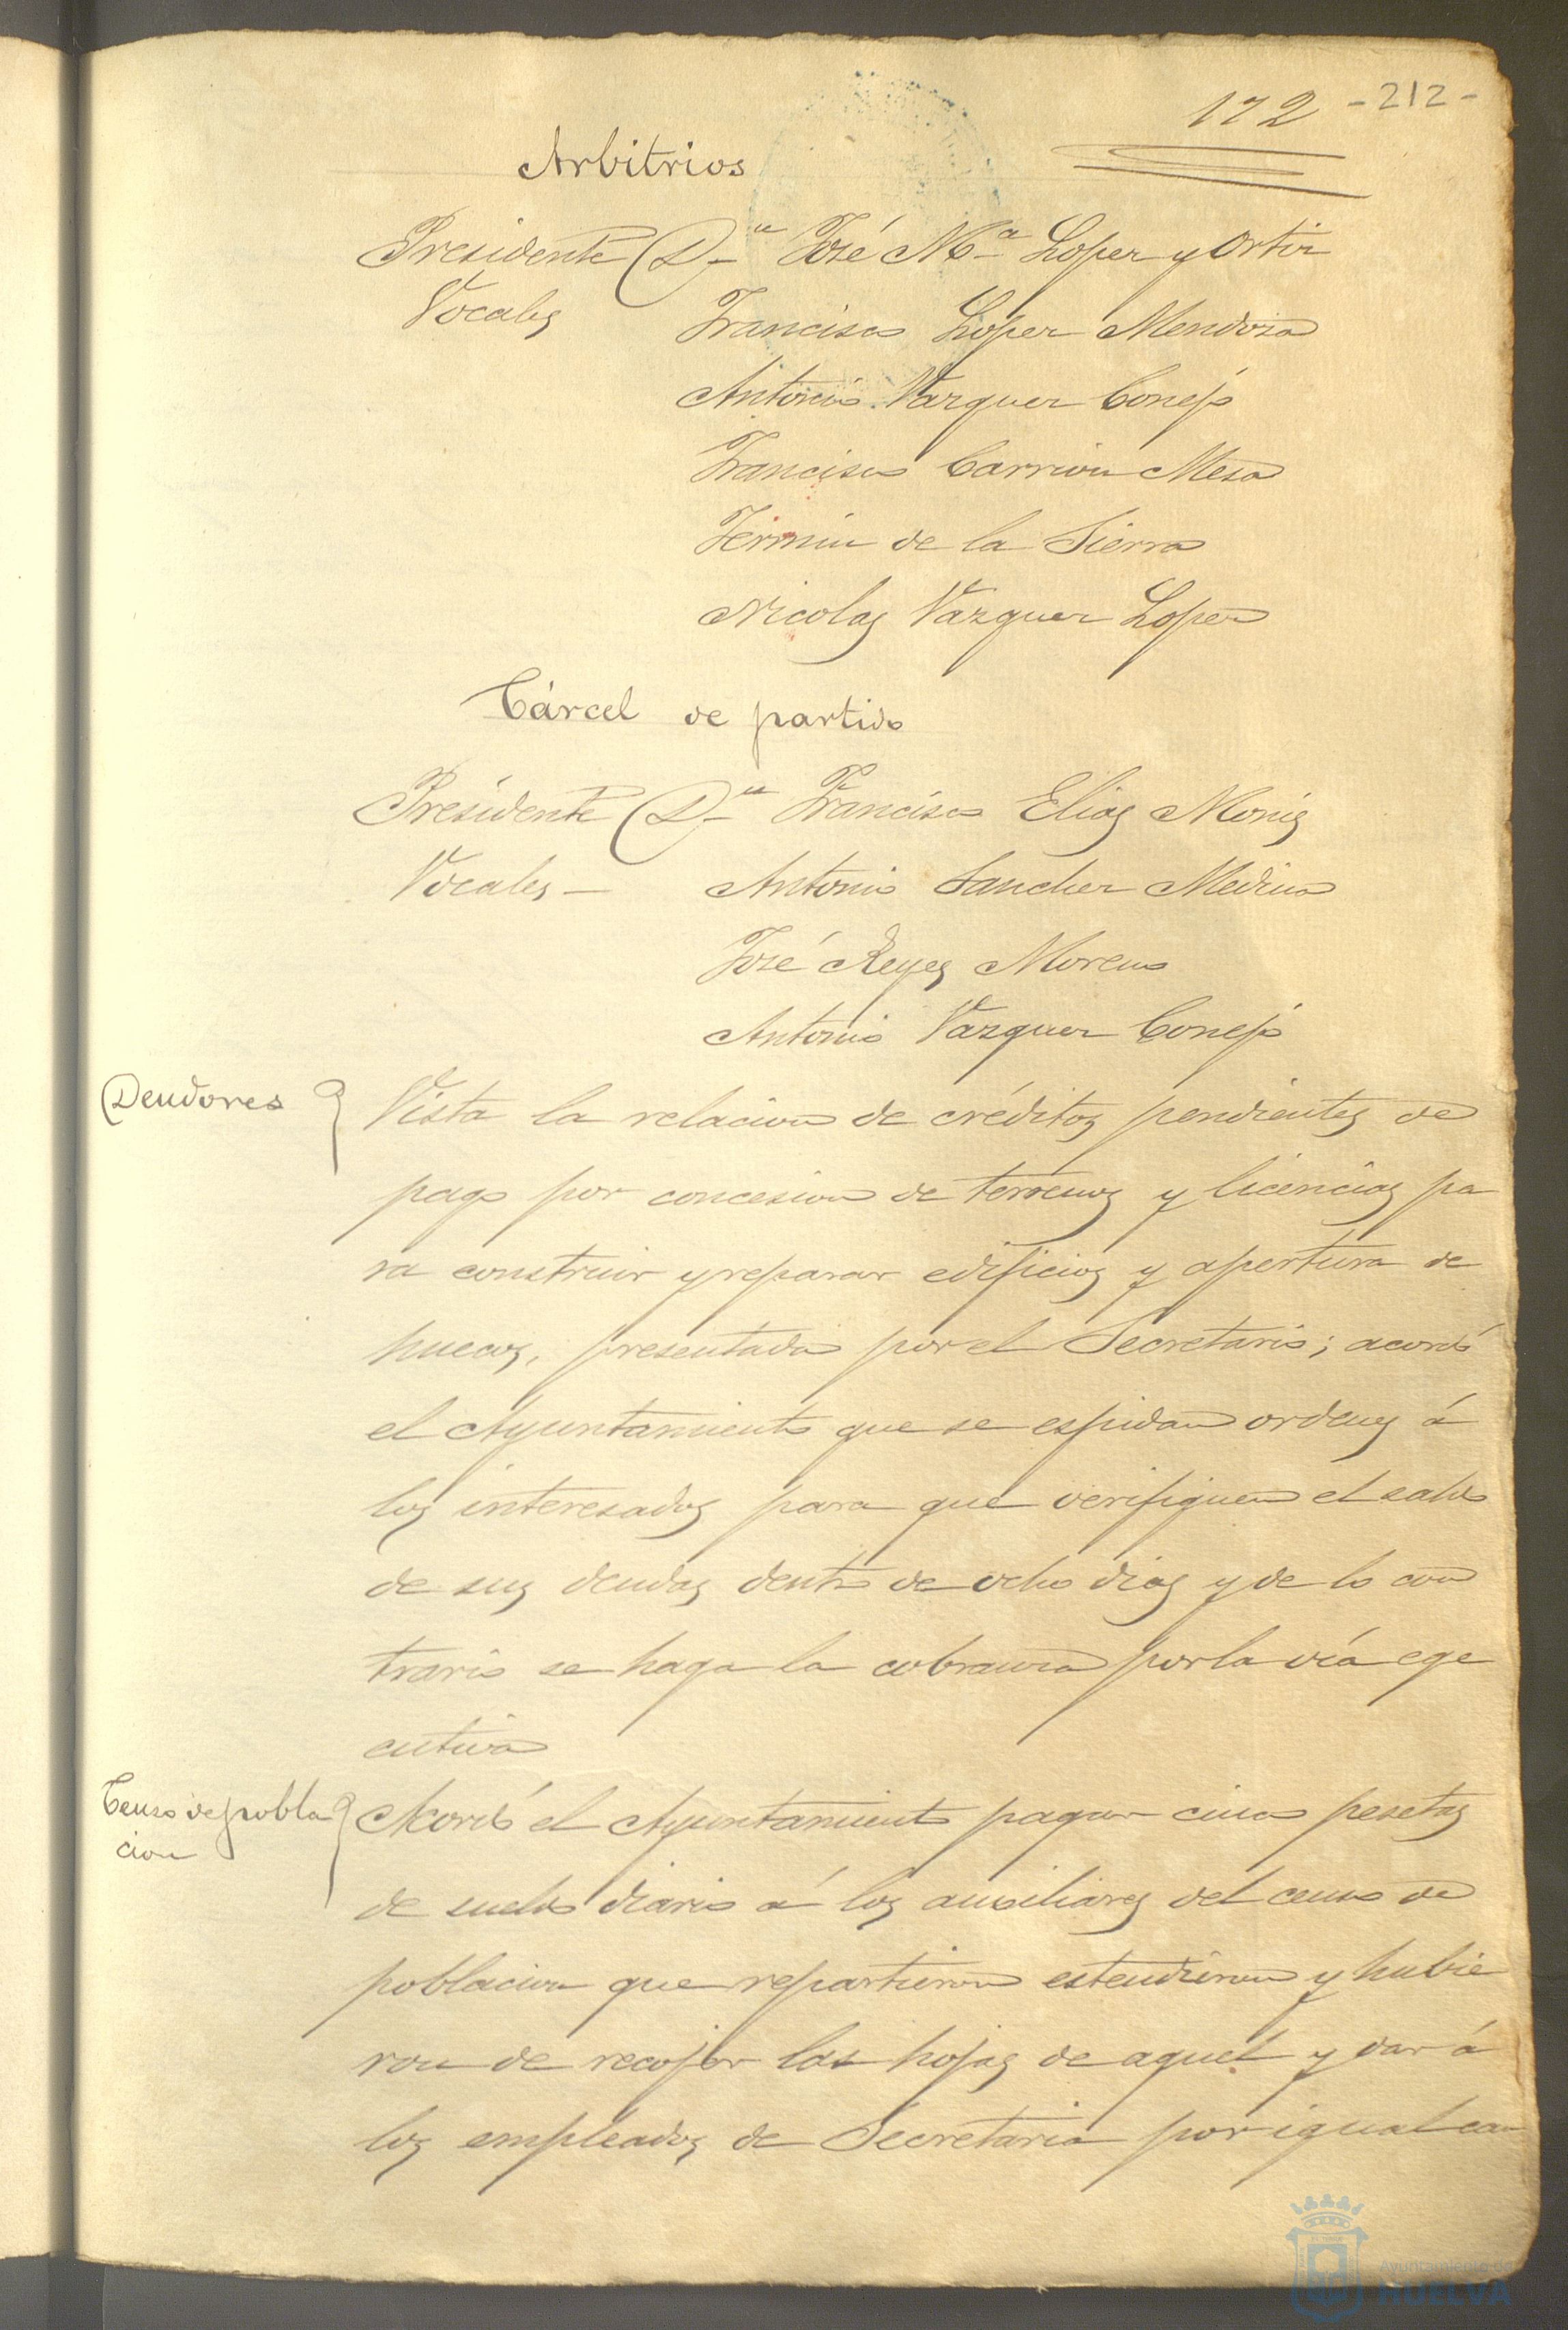 172 -212-
Arbitrios
Presidente D.n José M.a Lopez y Ortiz
Vocales Francisco Lopez Mendoza
Antonio Vazquez Conejo
Francisco Carrion Mesa
Fermin de la Sierra
Nicolas Vazquez Lopez
Cárcel de partido
Presidente D.n Francisco Elias Monis
Vocales - Antonio Sanchez Medina
José Reyes Moreno
Antonio Vazquez Conejo
Deudores Vista la relacion de créditos pendientes de
pago por concesion de terrenos y licencias pa
ra construir y reparar edificios y apertura de
huecos, presentada por el Secretario; acordó
el Ayuntamiento que se espidan ordenes á
los interesados para que verifiquen el saldo
de sus deudas dentro de ocho dias y de lo con
trario se haga la cobranza por la vía ege
cutiva
Censo de pobla
cion
Acordó el Ayuntamiento pagar cinco pesetas
de sueldo diario á los ausiliares del censo de
poblacion que repartieron estendieron y hubie
ron de recojer las hojas de aquel y dar á
los empleados de Secretaria por igual can
Ayuntamiento de
HUELVA